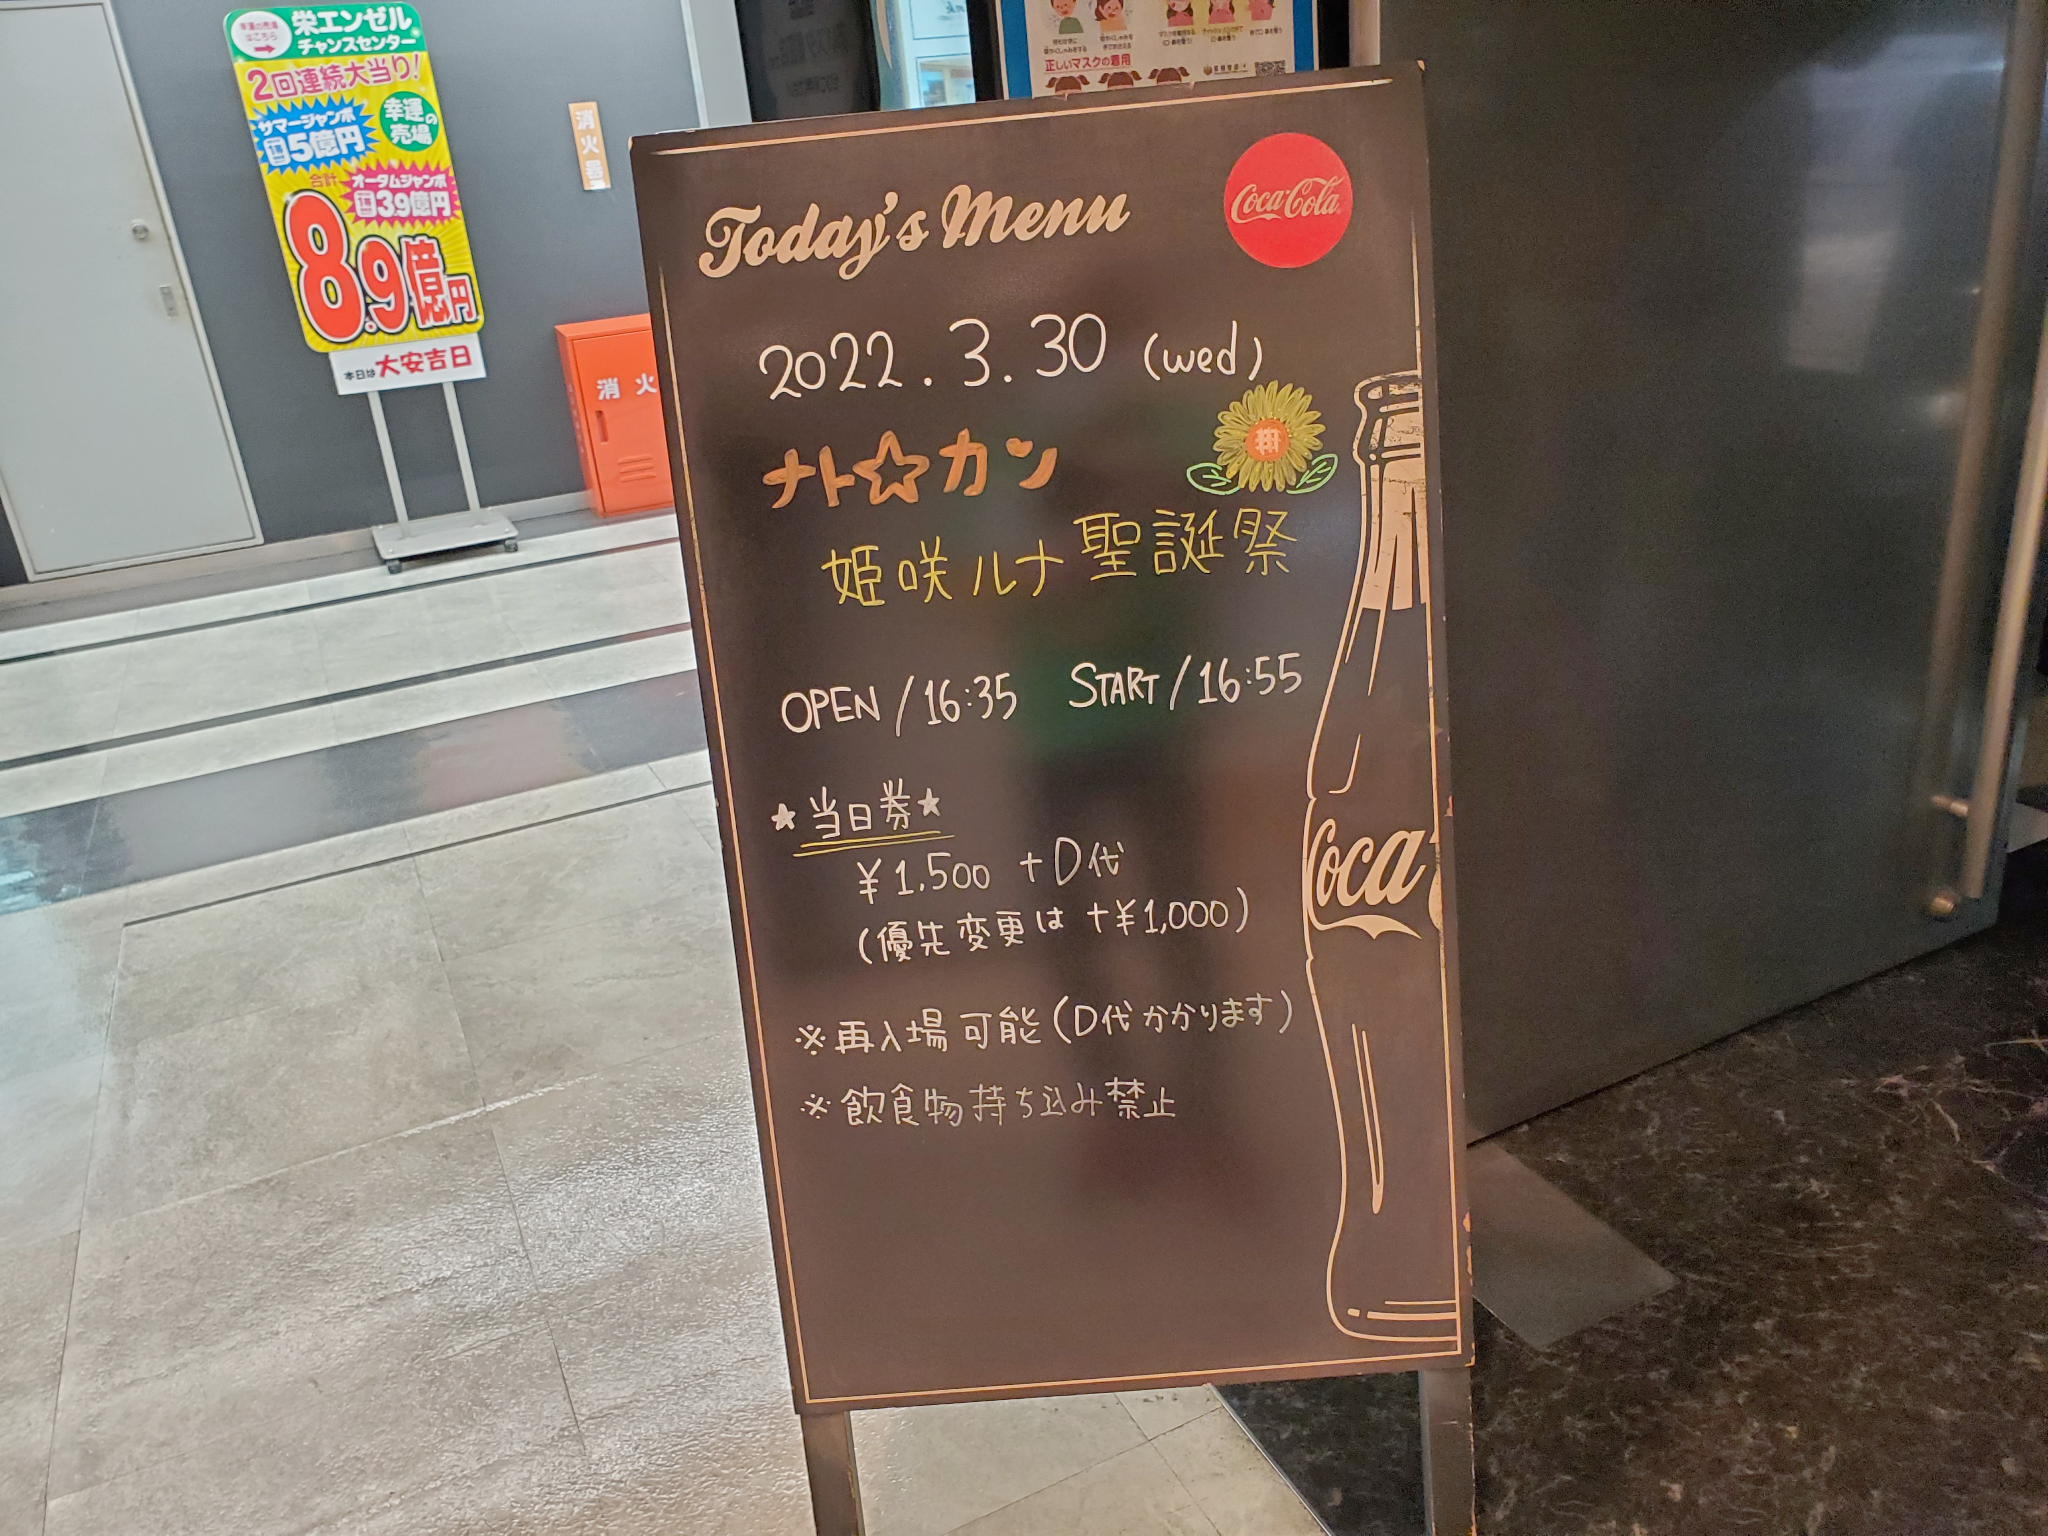 幸運の売場
はこちら
栄エンゼル
チャンスセンター
2回連続大当り!
サマージャンボ
1等5億円
幸運の
売場
合計
オータムジャンボ
1等3.9億円
8.9億円
本日は大安吉日
消火器
消火
正しいマスクの着用
Today's Menu
Coca-Cola
2022.3.30 (wed)
ナト☆カン
姫咲ルナ聖誕祭
OPEN/16:35 START/16:55
★当日券★
¥1,500 +D代
(優先変更は+¥1,000)
※再入場可能(D代かかります)
※飲食物持ち込み禁止
Coca